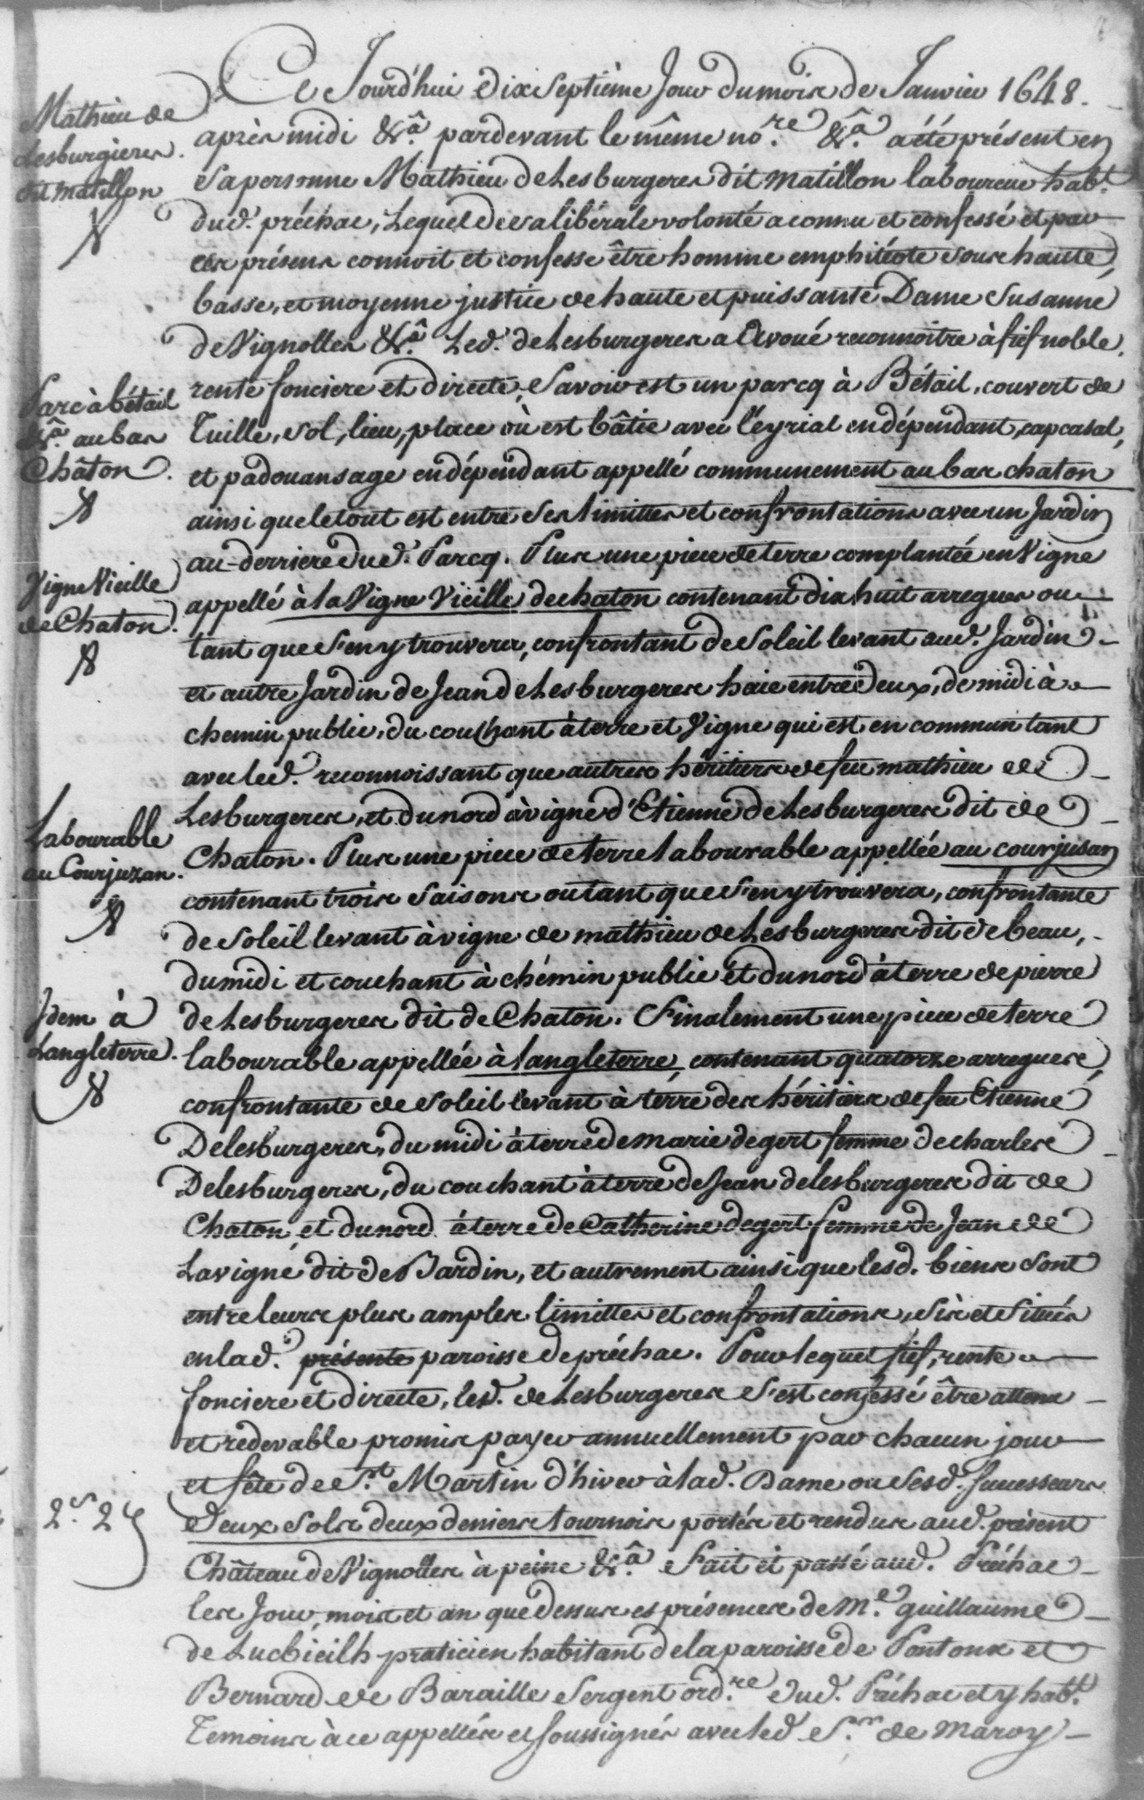 Ce Jourd'hui dix septième Jour du mois de Janvier 1648.
Mathieu de
Lesburgieres
dit matillon
après midi &.a pardevant le même no.re &.a a été présent en
Sa personne Mathieu de Lesburgeres dit matillon laboureur hab.t
dud. préchac, Lequel de sa libérale volonté a connu et confessé et par
ces présens connoit et confesse être homme emphitéote sous haute,
basse, et moyenne justice de haute et puissante Dame Susanne
de Vignolles &.a Led. de Lesburgeres a Avoué reconnoitre à fief noble,
Parc à bétail
&.a au bas
Châton.
rente fonciere et directe, Savoir est un parcq à Bétail, couvert de
Tuille, sol, lieu, place où est bâtie avec l'eyrial en dépendant, capcasal,
et padouansage en dépendant appellé communement au bas chaton
ainsi que le tout est entre ses limittes et confrontations avec un Jardin
au-derriere dud. Parcq. Plus une piece de terre complantée en Vigne
Vigne Vieille
de Chaton.
appellé à la Vigne Vieille de chaton contenant dix huit arregues ou
tant que s'en y trouvera, confrontant de Soleil levant aud. Jardin
et autre Jardin de Jean de Lesburgeres haie entre deux, de midi à
chemin public, du couchant à terre et Vigne qui est en commun tant
avec led. reconnoissant que autres héritiers de feu mathieu de
Lesburgeres, et du nord à vigne d'Etienne de Lesburgeres dit de
Labourable
au Courjuzan.
Chaton. Plus une piece de terre labourable appellée au courjusan
contenant trois saisons ou tant que s'en y trouvera, confrontante
de Soleil levant à vigne de mathieu de Lesburgeres dit de beau,
du midi et couchant à chémin public et du nord à terre de pierre
Idem à
Langleterre.
de Lesburgeres dit de Chaton. Finalement une piece de terre
labourable appellée à langleterre, contenant quatorze arregues,
confrontante de Soleil levant à terre des héritiers de feu Etienne
Delesburgeres, du midi à terre de marie degert femme de charles
Delesburgeres, du couchant à terre de Jean delesburgeres dit de
Chaton, et du nord à terre de Catherine degert femme de Jean de
Lavigne dit de Bardin, et autrement ainsi que lesd. biens sont
entre leurs plus amples limittes et confrontations, sis et situés
en lad. présente paroisse de préchac. Pour lequel fief, rente
fonciere et directe, led. de Lesburgeres s'est confessé être attenu
et redevable promis payer annuellement par chacun jour
et fête de S.t Martin d'hiver à lad. Dame ou sesd. successeurs
2.s 2 d
deux sols deux deniers tournois portés et rendus aud. présent
Château de Vignolles à peine &.a Fait et passé aud. Préchac
les Jour, mois et an que dessus es présences de M.e guillaume
de Lucbieilh praticien habitant de la paroisse de Pontonx et
Bernard de Baraille Sergent ord.re dud. Préchac et y hab.t
Temoins à ce appellés et soussignés avec led. S.r de Maroy